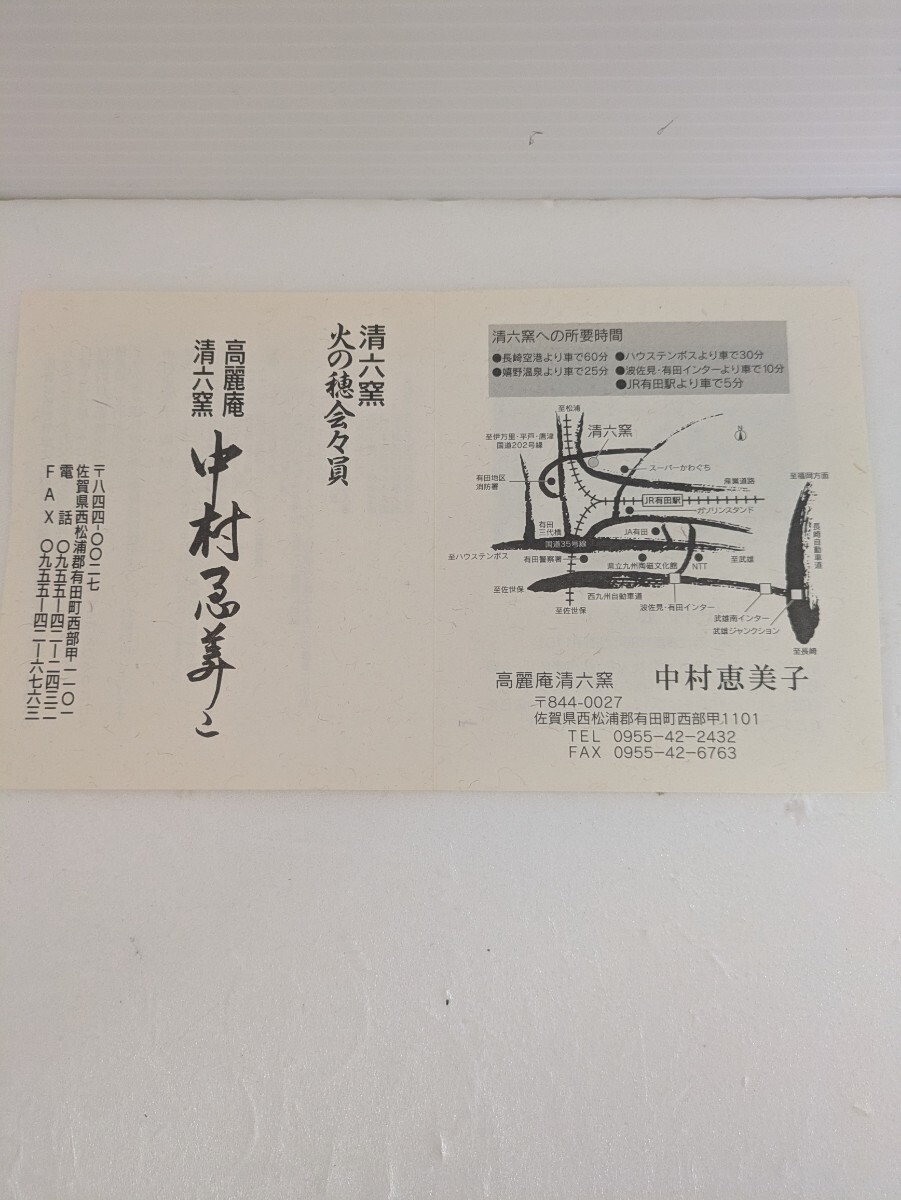 清六窯
火の穂会々員
高麗庵
清六窯
中村恵美子
〒八四四-〇〇二七
佐賀県西松浦郡有田町西部甲一一〇一
電話 〇九五五-四二-二四三二
FAX 〇九五五-四二-六七六三
清六窯への所要時間
●長崎空港より車で60分 ●ハウステンボスより車で30分
●嬉野温泉より車で25分 ●波佐見・有田インターより車で10分
●JR有田駅より車で5分
至松浦
至伊万里・平戸・唐津
国道202号線
清六窯
スーパーかわぐち
至福岡方面
有田地区
消防署
産業道路
JR有田駅
ガソリンスタンド
有田
三代橋
JA有田
長崎自動車道
国道35号線
至ハウステンボス
有田警察署
県立九州陶磁文化館
NTT
至武雄
至佐世保
西九州自動車道
至佐世保
波佐見・有田インター
武雄南インター
武雄ジャンクション
至長崎
高麗庵清六窯 中村恵美子
〒844-0027
佐賀県西松浦郡有田町西部甲1101
TEL 0955-42-2432
FAX 0955-42-6763